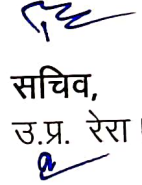 सचिव,
उ.प्र. रेरा।